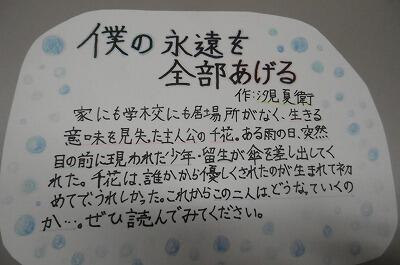 僕の永遠を
全部あげる
作:汐見夏衛
家にも学校にも居場所がなく、生きる
意味を見失った主人公の千花。ある雨の日、突然
目の前に現われた少年・留生が傘を差し出してく
れた。千花は、誰かから優しくされたのが生まれて初
めてで、うれしかった。これからこの二人は、どうなっていくの
か…。ぜひ読んでみてください。